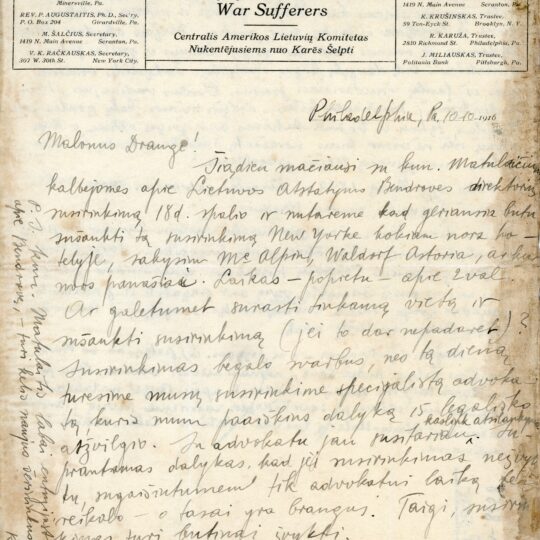 Minersville, Pa.
REV. P. AUGUSTAITIS, Ph. D., Sec'ry.
P. O. Box 204 Girardville, Pa.
M. ŠALČIUS, Secretary,
1419 N. Main Avenue Scranton, Pa.
V. K. RAČKAUSKAS, Secretary,
307 W. 30th St. New York City.
War Sufferers
Centralis Amerikos Lietuvių Komitetas
Nukentėjusiems nuo Karės Šelpti
1419 N. Main Avenue Scranton, Pa.
K. KRUŠINSKAS, Trustee,
Ten-Eyck St. Brooklyn, N. Y.
R. KARUŽA, Trustee,
2820 Richmond St. Philadelphia, Pa.
J. MILIAUSKAS, Trustee,
Politania Bank Pittsburgh, Pa.
Philadelphia, Pa. 10-10-1916
Malonus Drauge!
Šiądien mačiausi su kun. Matulaičiu
kalbėjomės apie Lietuvos Atstatymo Bendrovės direktorių
susirinkimą 18 d. spalio ir nutarėme kad geriausia butų
sušaukti tą susirinkimą New Yorke kokiam nors ho-
telyje, sakysim Mc Alpin, Waldorf Astoria, ar ku
nors panašiai. Laikas – popietu – apie 2 val.
Ar galėtumėt surasti tinkamą vietą ir
sušaukti susirinkimą (jei to dar nepadarėt)?
Susirinkimas begalo svarbus, nes tą dieną
turėsime musų susirinkime specijalistą advoka-
tą kuris mum paaiškins dalyką iš legališko
atžvilgio. Su advokatu jau susitariau kaslink atsilankymo. Su-
prantamas dalykas, kad jei susirinkimas neįvyk
tų, sugaišintumėm tik advokatui laiką be
reikalo – o tasai yra brangus. Taigi, susirin-
kimas turi butinai įvykti.
P. S. kun. Matulaitis labai
apie Bendrovę, – turi kelio naujus